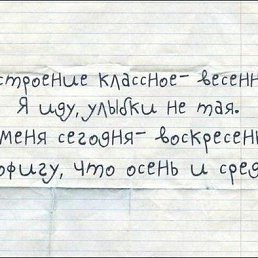 строение классное- весенн
Я иду, улыбки не тая.
меня сегодня- воскресень
офигу, что осень и сред